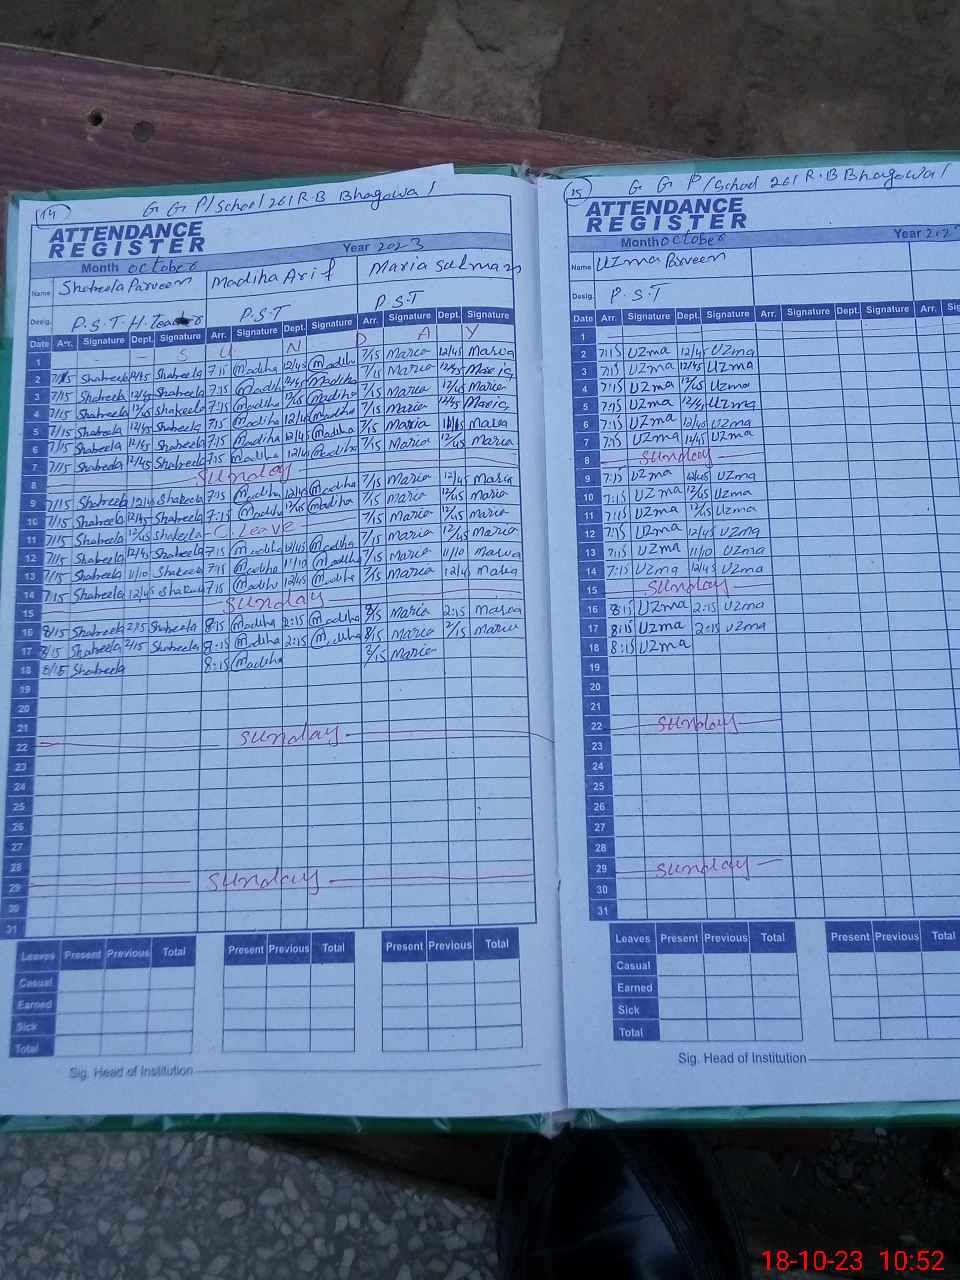 14 G G P/School 261 R.B Bhagowal
ATTENDANCE
REGISTER
Month October Year 2023
Name Shaheela Parveen Madiha Arif Maria Salman
Desig. P.S.T. H. Teacher P.S.T P.S.T
Date Arr. Signature Dept. Signature Arr. Signature Dept. Signature Arr. Signature Dept. Signature
1 S U N D A Y
2 7/15 Shaheela 12/45 Shaheela 7:15 Madiha 12/45 Madiha 7/15 Maria 12/45 Maria
3 7/15 Shaheela 12/45 Shaheela 7:15 Madiha 12/45 Madiha 7/15 Maria 12/45 Maria
4 7/15 Shaheela 12/45 Shaheela 7:15 Madiha 12/45 Madiha 7/15 Maria 12/45 Maria
5 7/15 Shaheela 12/45 Shaheela 7:15 Madiha 12/45 Madiha 7/15 Maria 12/45 Maria
6 7/15 Shaheela 12/45 Shaheela 7:15 Madiha 12/45 Madiha 7/15 Maria Maria
7 7/15 Shaheela 12/45 Shaheela 7:15 Madiha 12/45 Madiha 7/15 Maria 12/45 Maria
8 Sunday
9 7/15 Shaheela 12/45 Shaheela 7:15 Madiha 12/45 Madiha 7/15 Maria 12/45 Maria
10 7/15 Shaheela 12/45 Shaheela 7:15 Madiha 12/45 Madiha 7/15 Maria 12/45 Maria
11 7/15 Shaheela 12/45 Shaheela C. Leave 7/15 Maria 12/45 Maria
12 7/15 Shaheela 12/45 Shaheela 7:15 Madiha 12/45 Madiha 7/15 Maria 12/45 Maria
13 7/15 Shaheela 11/10 Shaheela 7:15 Madiha 11/10 Madiha 7/15 Maria 11/10 Maria
14 7/15 Shaheela 12/45 Shaheela 7:15 Madiha 12/45 Madiha 7/15 Maria 12/45 Maria
15 Sunday
16 8/15 Shaheela 2/15 Shaheela 8:15 Madiha 2:15 Madiha 8/15 Maria 2:15 Maria
17 8/15 Shaheela 2/15 Shaheela 8:15 Madiha 2:15 Madiha 8/15 Maria 2/15 Maria
18 8/15 Shaheela 8:15 Madiha 8/15 Maria
19
20
21
22 Sunday
23
24
25
26
27
28
29 Sunday
30
31
Leaves Present Previous Total Present Previous Total Present Previous Total
Casual
Earned
Sick
Total
Sig. Head of Institution
15 G G P/School 261 R.B Bhagowal
ATTENDANCE
REGISTER
Month October Year
Name Uzma Parveen
Desig. P.S.T
Date Arr. Signature Dept. Signature Arr. Signature Dept. Signature Arr. Si
1
2 7:15 Uzma 12/45 Uzma
3 7:15 Uzma 12/45 Uzma
4 7:15 Uzma 12/45 Uzma
5 7:15 Uzma 12/45 Uzma
6 7:15 Uzma 12/45 Uzma
7 7:15 Uzma 12/45 Uzma
8 Sunday
9 7:15 Uzma 12/45 Uzma
10 7:15 Uzma 12/45 Uzma
11 7:15 Uzma 12/45 Uzma
12 7:15 Uzma 12/45 Uzma
13 7:15 Uzma 11/10 Uzma
14 7:15 Uzma 12/45 Uzma
15 Sunday
16 8:15 Uzma 2:15 Uzma
17 8:15 Uzma 2:15 Uzma
18 8:15 Uzma
19
20
21
22 Sunday
23
24
25
26
27
28
29 Sunday
30
31
Leaves Present Previous Total Present Previous Total
Casual
Earned
Sick
Total
Sig. Head of Institution
18-10-23 10:52